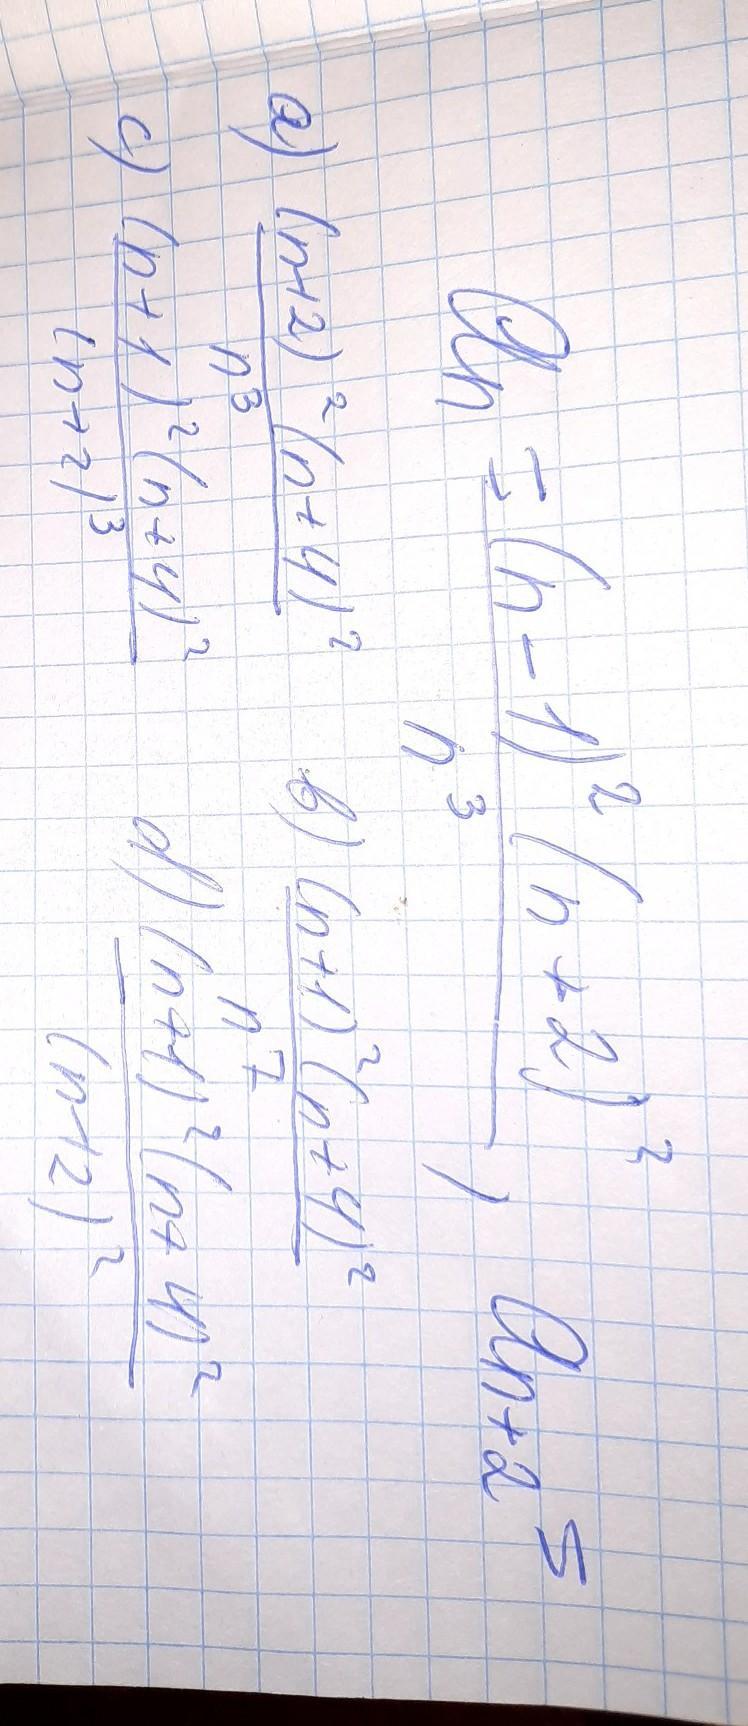 an = (n-1)²(n+2)² / n³ , an+2 =
a) (n+2)²(n+4)² / n³ b) (n+1)²(n+4)² / n⁷
c) (n+1)²(n+4)² / (n+2)³ d) (n+1)²(n+4)² / (n+2)²